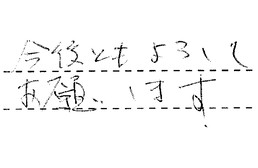 今後ともよろしく
お願いします